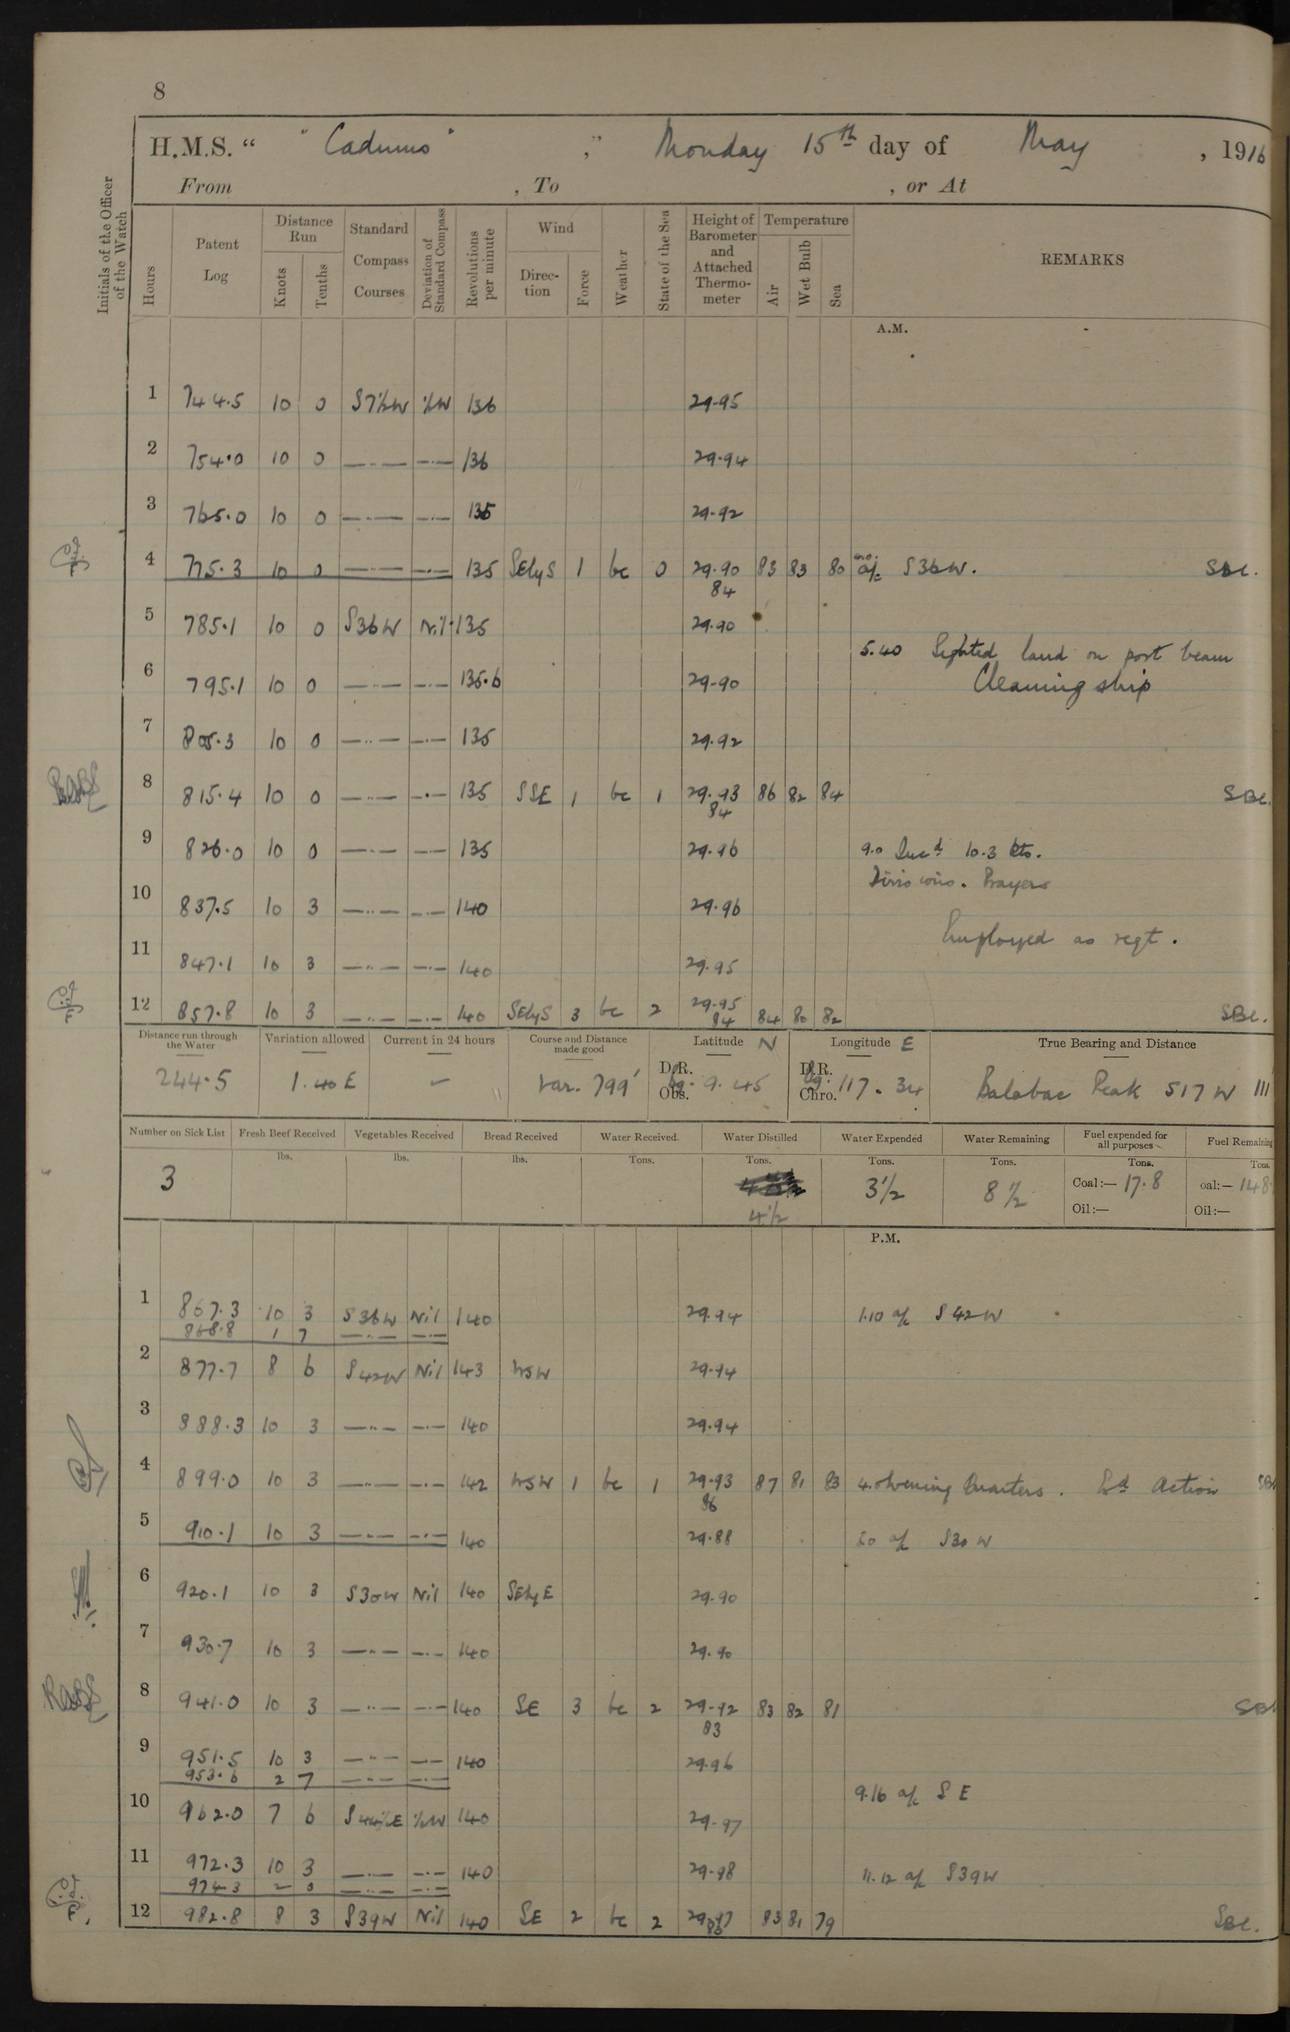 8
H.M.S. “ "Cadmus" ,” Monday 15th day of May , 1916
From , To , or At
Initials of the Officer of the Watch
Hours
Patent Log
Distance Run
Knots
Tenths
Standard Compass Courses
Deviation of Standard Compass
Revolutions per minute
Wind
Direc-tion
Force
Weather
State of the Sea
Height of Barometer and Attached Thermo-meter
Temperature
Air
Wet Bulb
Sea
REMARKS
A.M.
1 744.5 10 0 S7½W ½W 136 29.95
2 754.0 10 0 —··— —·— 136 29.94
3 765.0 10 0 —··— —·— 135 29.92
4 775.3 10 0 —··— —·— 135 SEbyS 1 bc 0 29.90 83 83 80 a/c S36W. SBC.
84
5 785.1 10 0 S36W Nil 135 29.90
5.40 Sighted land on port beam
6 795.1 10 0 —··— —·— 135.6 29.90 Cleaning ship
7 805.3 10 0 —··— —·— 135 29.92
8 815.4 10 0 —··— —·— 135 SSE 1 bc 1 29.93 86 82 84 SBC.
84
9 826.0 10 0 —··— —·— 135 29.96 9.0 Incd 10.3 kts.
Divisions. Prayers
10 837.5 10 3 —··— —·— 140 29.96
Employed as reqt.
11 847.1 10 3 —··— —·— 140 29.95
12 857.8 10 3 —··— —·— 140 SEbyS 3 bc 2 29.95 84 80 82 SBC.
84
Distance run through the Water
244.5
Variation allowed
1.40E
Current in 24 hours
Course and Distance made good
var. 799'
Latitude N
D.R.
Obs.
9.45
Longitude E
D.R.
Chro.
117.34
True Bearing and Distance
Balabac Peak S17W 111
Number on Sick List
3
Fresh Beef Received
lbs.
Vegetables Received
lbs.
Bread Received
lbs.
Water Received.
Tons.
Water Distilled
Tons.
4½
Water Expended
Tons.
3½
Water Remaining
Tons.
8½
Fuel expended for all purposes
Tons.
Coal:— 17.8
Oil:—
Fuel Remaining
Tons.
oal:— 148
Oil:—
P.M.
1 867.3 10 3 S36W Nil 140 29.94 1.10 a/c S42W
868.8 1 7 —··— —·—
2 877.7 8 6 S42W Nil 143 WSW 29.94
3 888.3 10 3 —··— —·— 140 29.94
4 899.0 10 3 —··— —·— 142 WSW 1 bc 1 29.93 87 81 83 4.0 Evening Quarters. Action
86
5 910.1 10 3 —··— —·— 140 29.88 5.0 a/c S30W
6 920.1 10 3 S30W Nil 140 SEbyE 29.90
7 930.7 10 3 —··— —·— 140 29.90
8 941.0 10 3 —··— —·— 140 SE 3 bc 2 29.92 83 82 81
83
9 951.5 10 3 —··— —·— 140 29.96
953.6 2 7 —··— —·—
9.16 a/c SE
10 962.0 7 6 S44½E ½W 140 29.97
11 972.3 10 3 —··— —·— 140 29.98 11.12 a/c S39W
974.3 2 0 —··— —·—
12 982.8 8 3 S39W Nil 140 SE 2 bc 2 29.97 83 81 79 SBC.